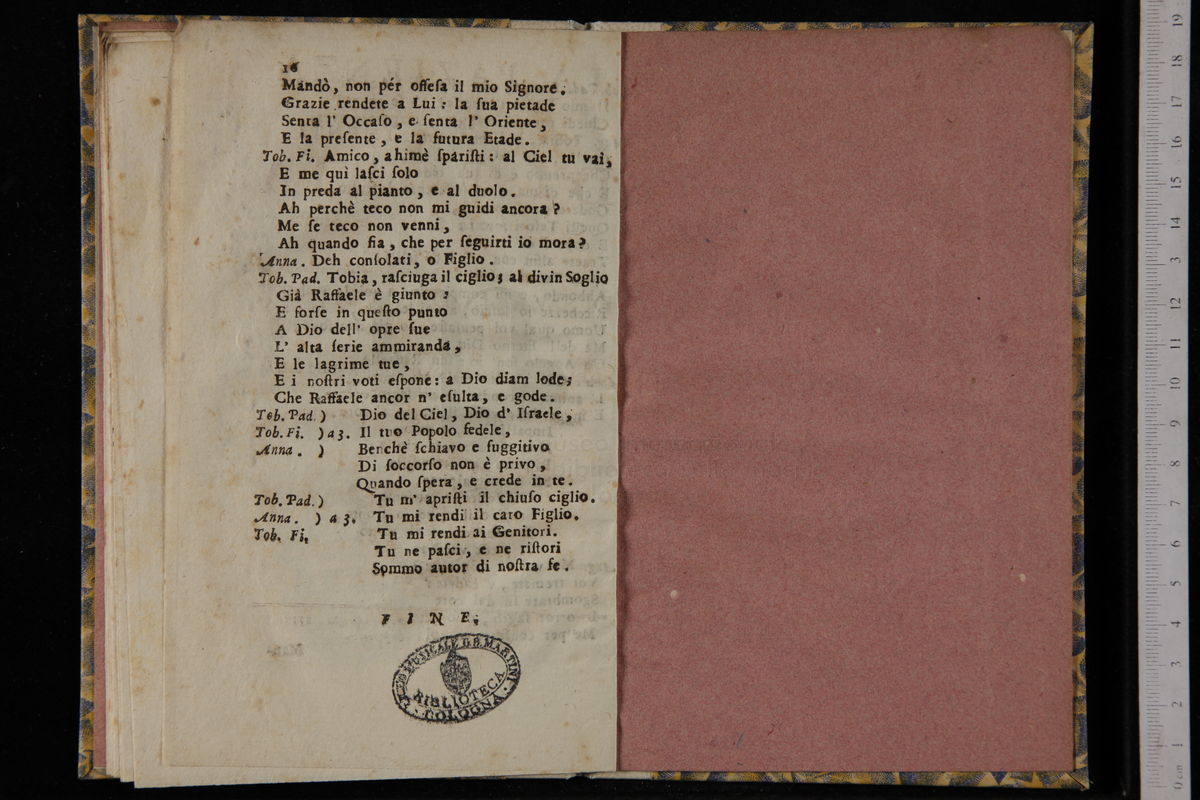 16
Mandò, non pér offeſa il mio Signore.
Grazie rendete a Lui: la ſua pietade
Senta l' Occaſo, e ſenta l' Oriente,
E la preſente, e la futura Etade.
Tob. Fi. Amico, ahimè ſpàriſti: al Ciel tu vai,
E me quì laſci ſolo
In preda al pianto, e al duolo.
Ah perchè teco non mi guidi ancora?
Me ſe teco non venni,
Ah quando fia, che per ſeguirti io mora?
Anna. Deh conſolati, o Figlio.
Tob. Pad. Tobia, raſciuga il ciglio; al divin Soglio
Già Raffaele è giunto:
E forſe in queſto punto
A Dio dell' opre ſue
L' alta ſerie ammiranda,
E le lagrime tue,
E i noſtri voti eſpone: a Dio diam lode;
Che Raffaele ancor n' eſulta, e gode.
Tob. Pad. ) Dio del Ciel, Dio d' Iſraele,
Tob. Fi. ) a 3. Il tuo Popolo fedele,
Anna. ) Benchè ſchiavo e fuggitivo
Di ſoccorſo non è privo,
Quando ſpera, e crede in te.
Tob. Pad. ) Tu m' apriſti il chiuſo ciglio.
Anna. ) a 3. Tu mi rendi il caro Figlio.
Tob. Fi. Tu mi rendi ai Genitori.
Tu ne paſci, e ne riſtori
Sommo autor di noſtra fe.
FINE.
LICEO MUSICALE G.B. MARTINI
BIBLIOTECA
BOLOGNA
19
18
17
16
15
14
13
12
11
10
9
8
7
6
5
4
3
2
1
0 cm